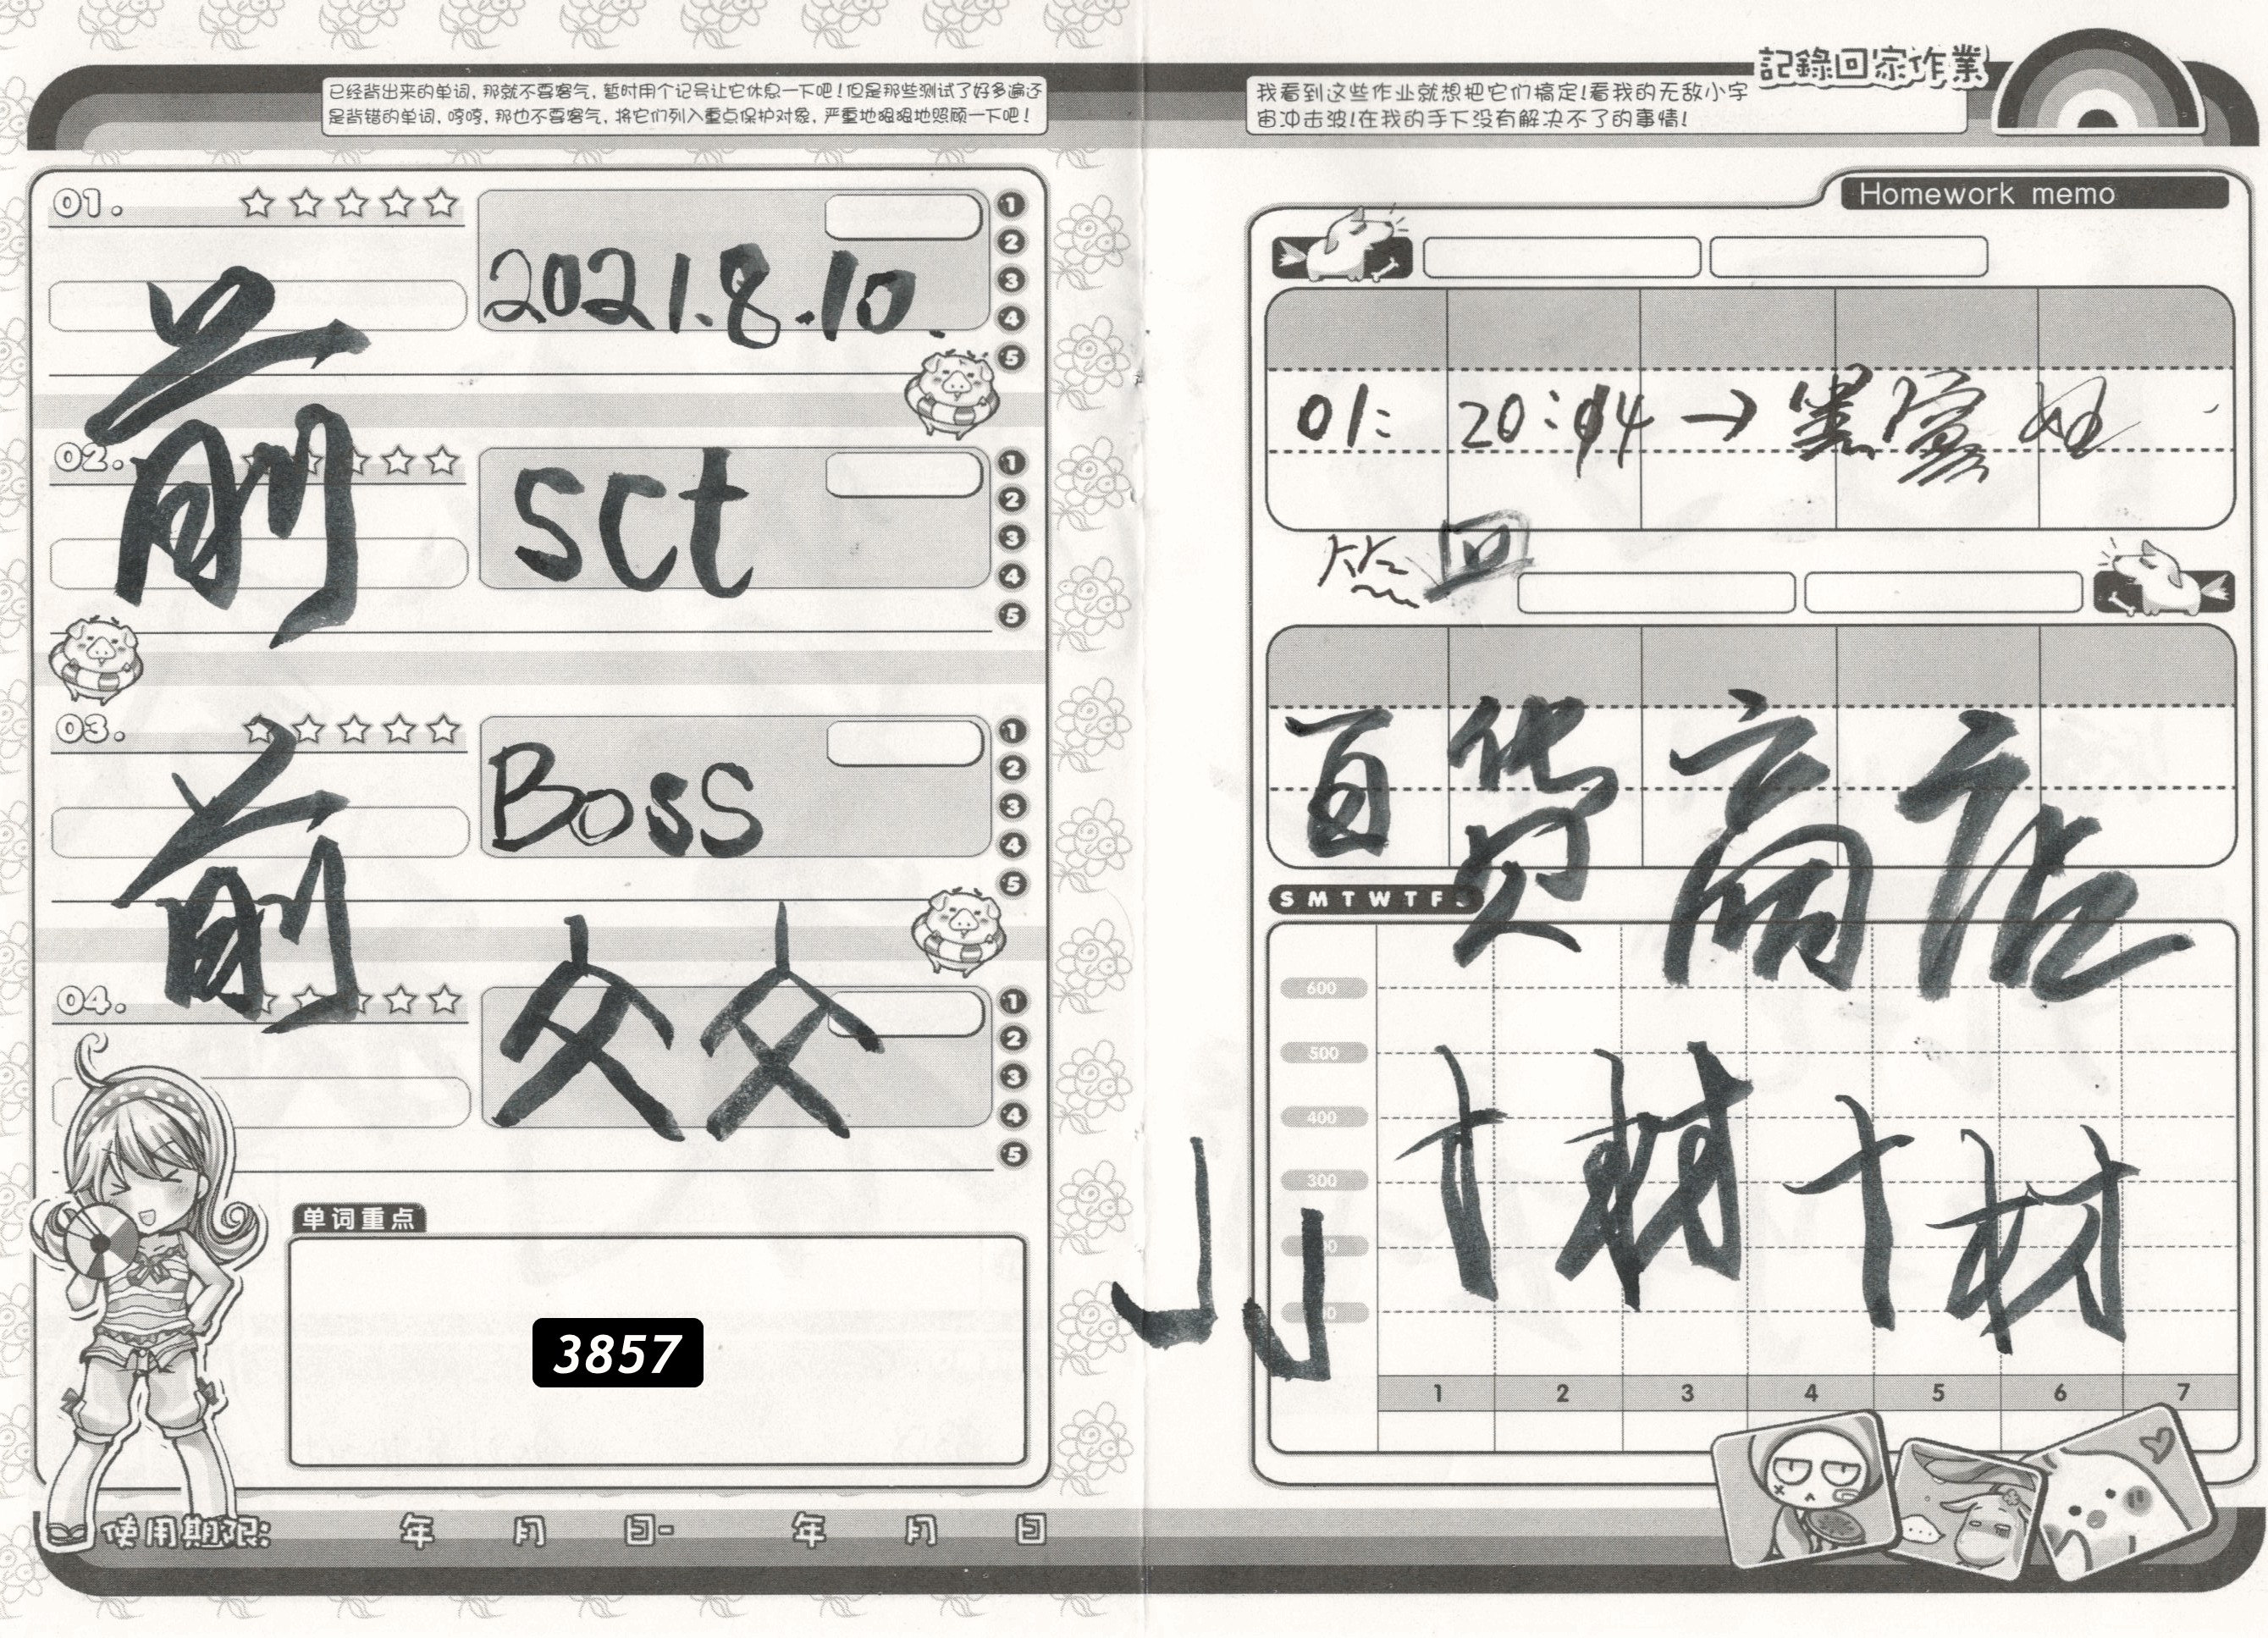 已经背出来的单词，那就不要客气，暂时用个记号让它休息一下吧！但是那些测试了好多遍还
是背错的单词，哼哼，那也不要客气，将它们列入重点保护对象，严重地狠狠地照顾一下吧！
01.
1
2021.8.10.
2
3
4
5
前
02.
sct
1
2
3
4
5
03.
Boss
1
2
3
4
5
前
04.
1
2
3
4
5
单词重点
3857
使用期限: 年 月 日- 年 月 日
記錄回家作業
我看到这些作业就想把它们搞定！看我的无敌小宇
宙冲击波！在我的手下没有解决不了的事情！
Homework memo
01: 20:04 →
百货商店
S M T W T F S
600
500
400
300
1 2 3 4 5 6 7